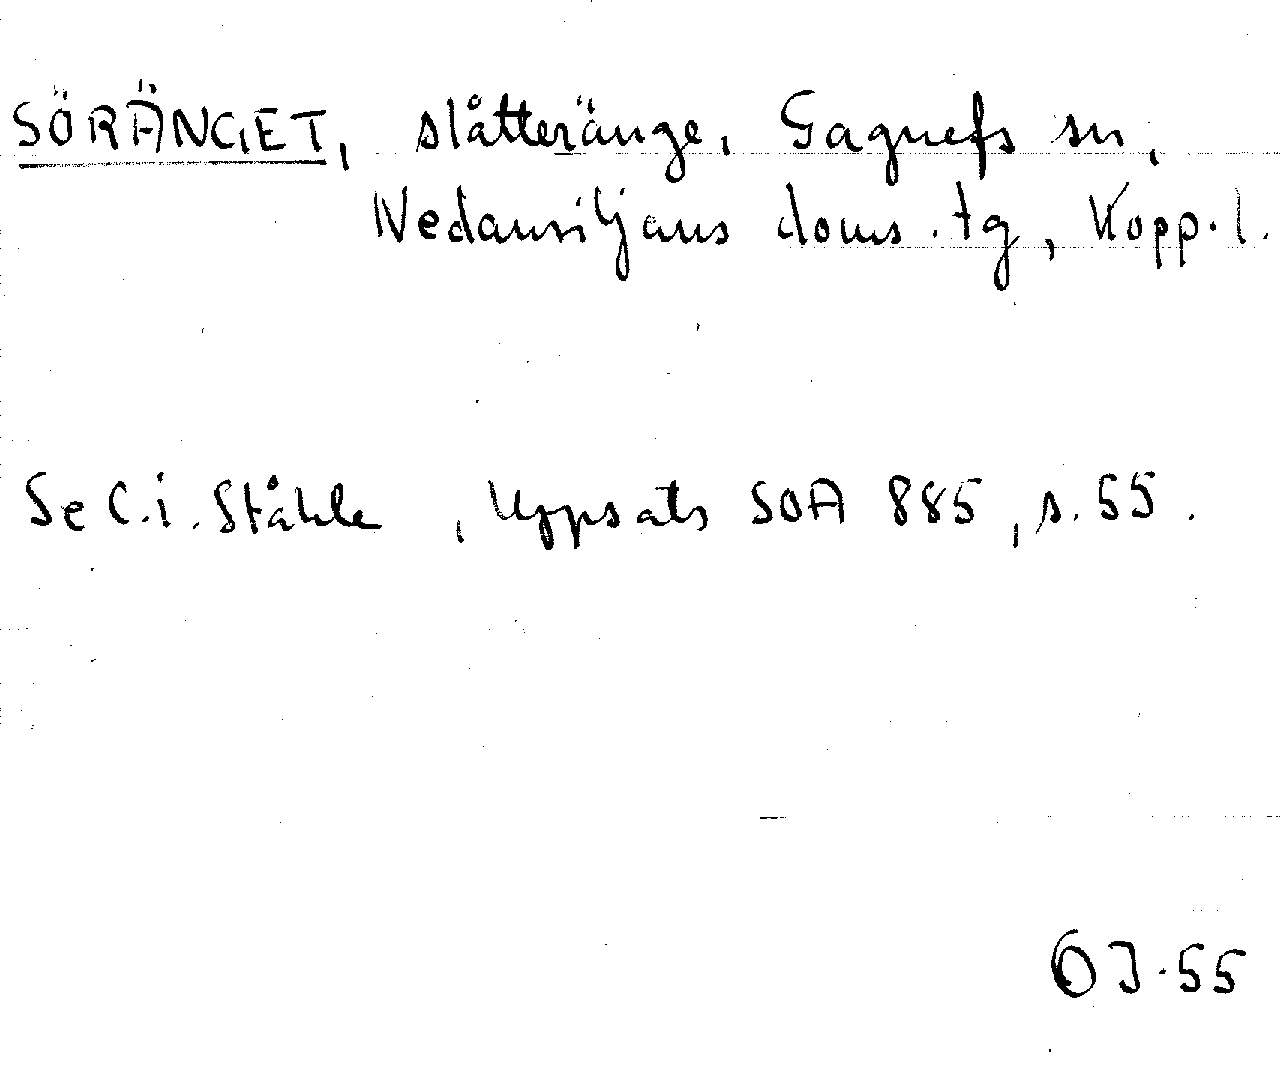 SÖRÄNGET, slåtteränge, Gagnefs sn,
Nedansiljans doms.tg, Kopp.l.
Se C.i. Ståhle, Uppsats SOA 885, s. 55.
OJ.55